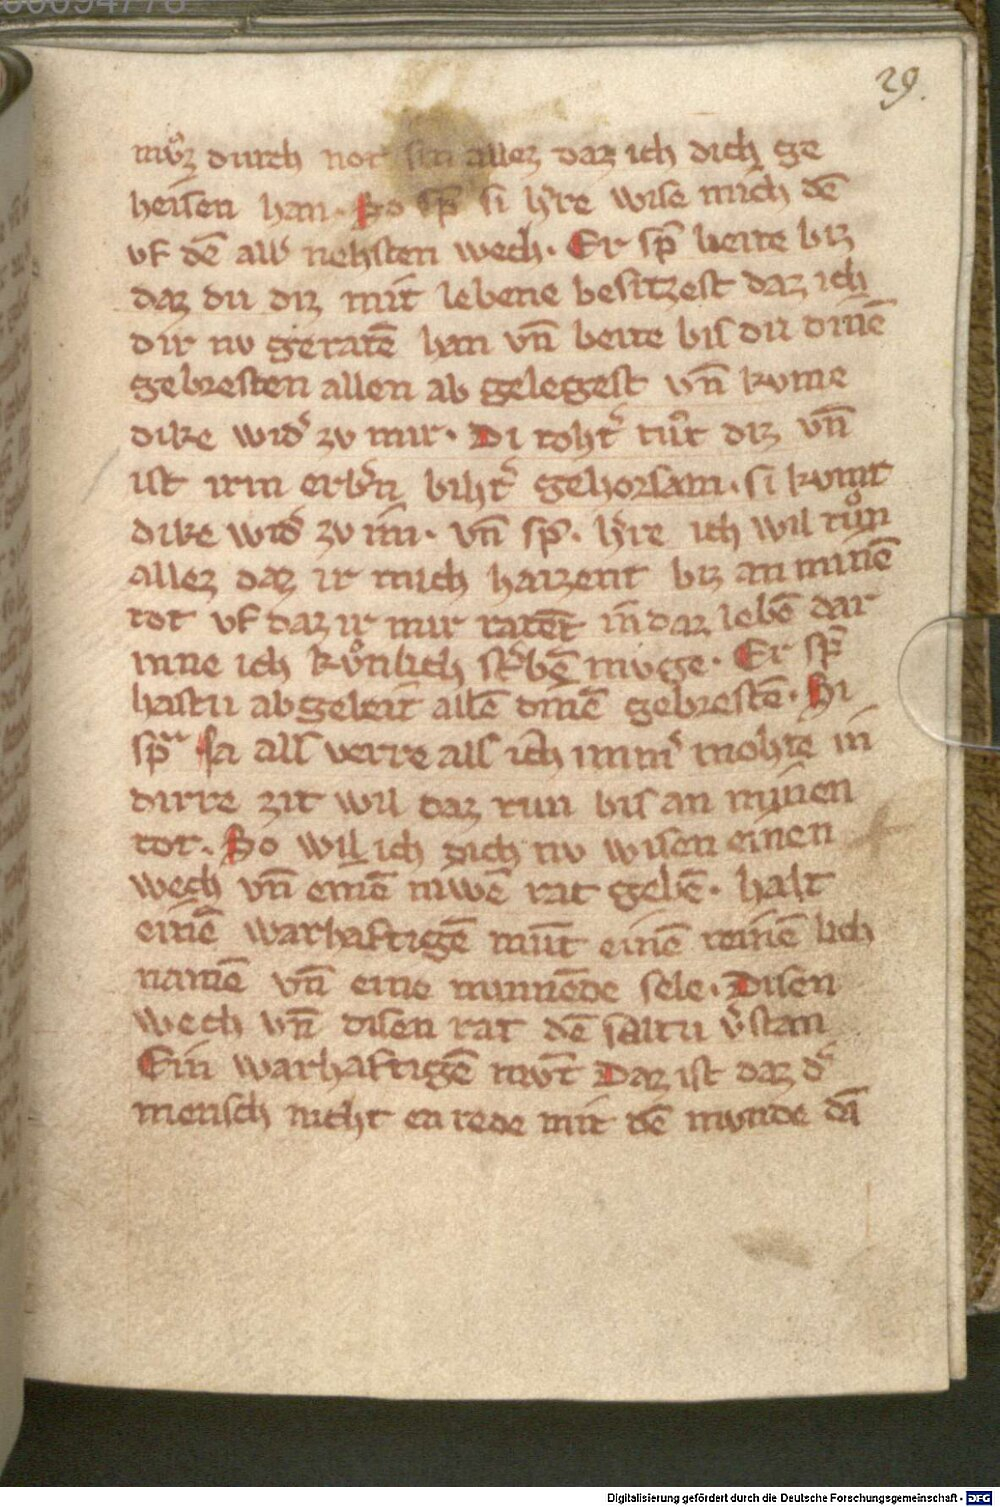 29.
mvͦz durch not sin allez daz ich dich ge
heisen han. So sp̄ si h̕re wise mich dē
vf dē all̕ nehsten wech. Er sp̄ beite biz
daz du diz mit lebene besitzest daz ich
dir nv geratē han vn̄ beite bis du dinē
gebresten allen ab gelegest vn̄ kvme
dike wid̕ zv mir. Di toht̕ tuͦt diz vn̄
ist irm erb̕n biht̕ gehorsam. si kvmt
dike wid̕ zv im. vn̄ sp̄. h̕re ich wil tuͦn
allez daz ir mich haizent biz an minē
tot vf daz ir mir ratēt in daz lebē dar
inne ich kvͦnlich st̕bē mvge. Er sp̄
hastu abgeleit allē dinē gebrestē. Si
sp̄ Ja als verre als ich imm̕ mohte in
dirre zit wil daz tun bis an minen
tot. So wil ich dich nv wisen einen
wech vn̄ einē niwē rat gebē. halt
einē warhaftigē mūt einē reinē lich
namē vn̄ eine minnēde sele. Disen
wech vn̄ disen rat dē saltu v̕stan
Ein warhaftigē mvt̄ Daz ist daz d̕
mensch nicht en rede mit dē mvnde dā
Digitalisierung gefördert durch die Deutsche Forschungsgemeinschaft - DFG